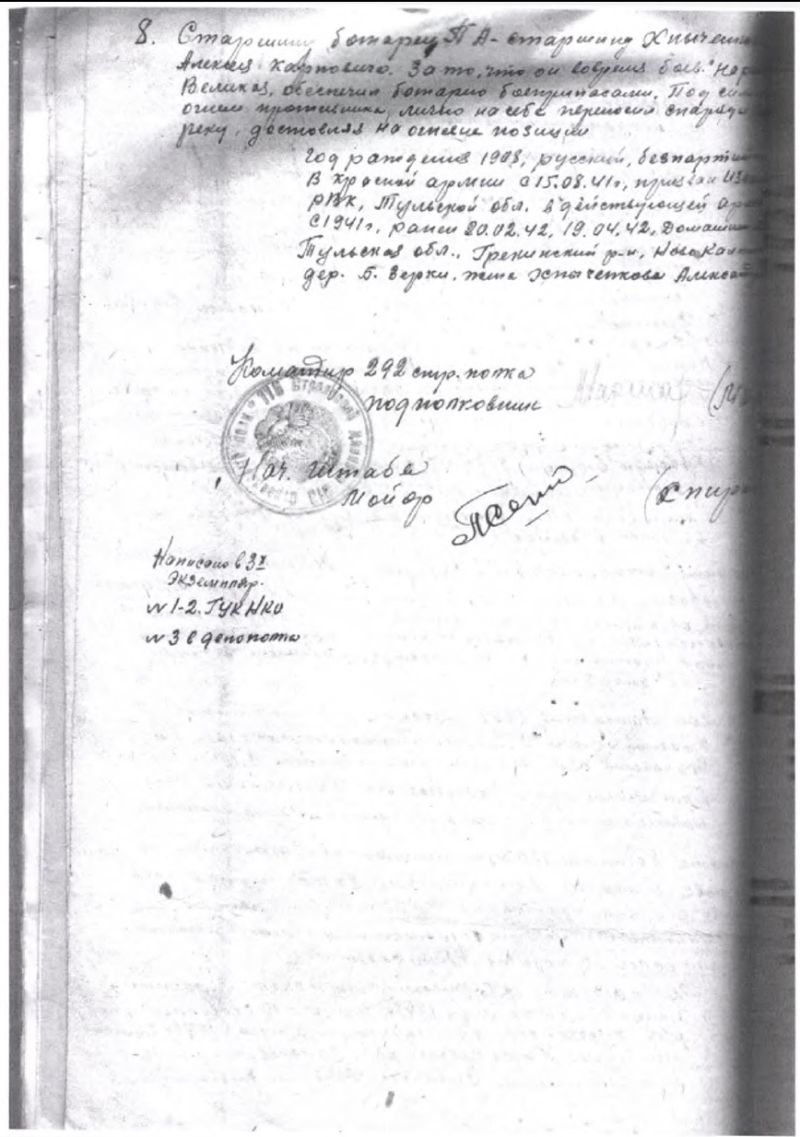 8. Старшину ботареи ПА - старшину Хпыченк
Алексея Карповича. За то, что он вовремя боев. "На р.
Великая, обеспечил ботарею боеприпасами. Под сил
огнем противника, лично на себе переносил снаряды
реку, доставляя на огневые позиции
Год раждения 1908, русский, безпартий
В Красной армии с 15.08.41г, призван
РВК, Тульской обл. в действующей арм
С 1941г, ранен 20.02.42, 19.04.42, Домашний
Тульская обл., р-н,
дер. Б. Верки. жена Хпыченкова Александ
Командир 292 стр. полка
подполковник
Нач. штаба
Мойор
Написано в 3х
экземпляр.
№ 1-2. ГУК НКО
№ 3 в дело полка